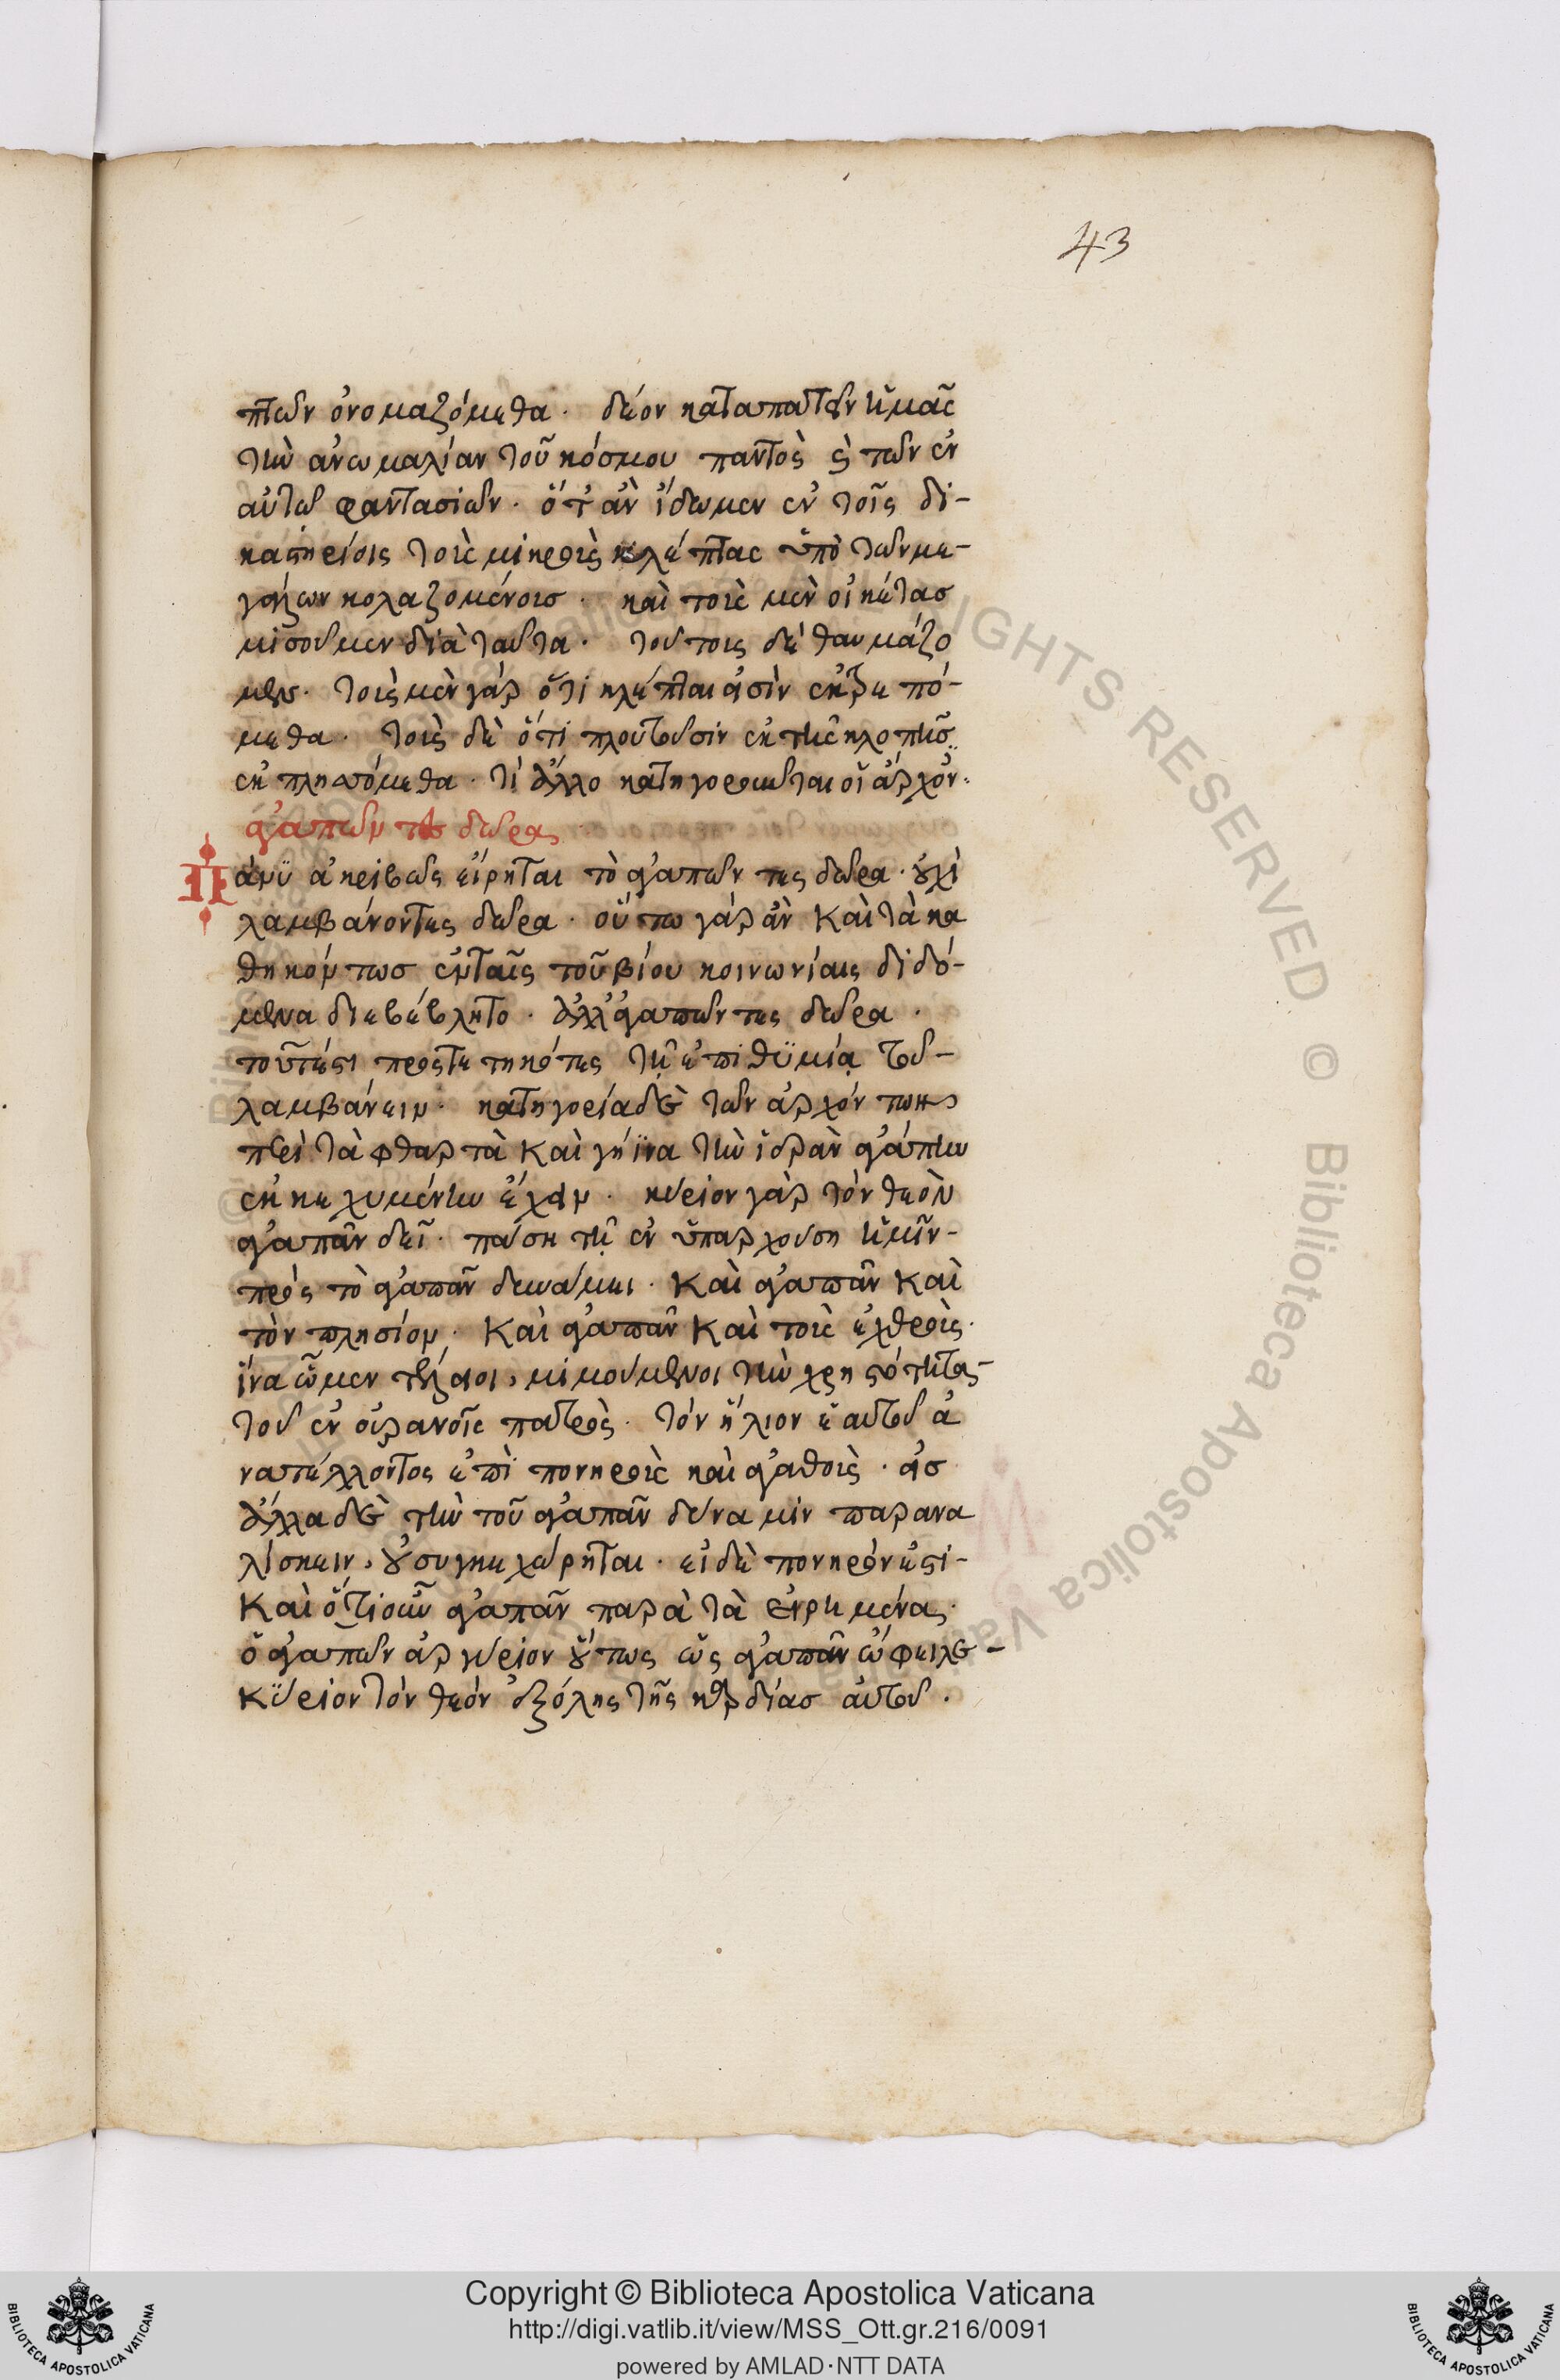 43
πτῶν ὀνομαζόμεθα. δέον καταπατεῖν ἡμᾶς
τὴν ἀνωμαλίαν τοῦ κόσμου παντὸς καὶ τῶν ἐν
αὐτῶ φαντασιῶν. ὅτ' ἂν ἴδωμεν ἐν τοῖς δι-
καστηρίοις τοὺς μικροὺς κλέπτας ὑπὸ τῶν με-
γάλων κολαζομένους. καὶ τοὺς μὲν οἰκέτας
μισοῦμεν διὰ ταῦτα. τούτους δὲ θαυμάζο
μεν. τοὺς μὲν γὰρ ὅτι κλέπται εἰσὶν ἐκτρεπό-
μεθα. τοὺς δὲ ὅτι πλουτοῦσιν ἐκ τῆς κλοπῆς
ἐκπλησσόμεθα. τί ἄλλο κατηγοροῦνται οἱ ἄρχον.
ἀγαπῶν τες δῶρα
Πάνυ ἀκριβῶς εἴρηται τὸ ἀγαπῶντες δῶρα. οὐχὶ
λαμβάνοντες δῶρα. οὕτω γὰρ ἂν καὶ τὰ κα
θηκόντως ἐν ταῖς τοῦ βίου κοινωνίαις διδό-
μενα διεβέβλητο. ἀλλ' ἀγαπῶντες δῶρα.
τουτέστι προστετηκότες τῇ ἐπιθυμίᾳ τοῦ-
λαμβάνειν. κατηγορία δὲ τῶν ἀρχόντων
περὶ τὰ φθαρτὰ καὶ γήϊνα τὴν ἱερὰν ἀγάπην
ἐκκεχυμένην ἔχειν. κύριον γὰρ τὸν θεὸν
ἀγαπᾶν δεῖ. πάσῃ τῇ ἐνυπαρχούσῃ ἡμῖν-
πρὸς τὸ ἀγαπᾶν δυνάμει. καὶ ἀγαπᾶν καὶ
τὸν πλησίον. καὶ ἀγαπᾶν καὶ τοὺς ἐχθροὺς.
ἵνα ὦμεν τέλειοι, μιμούμενοι τὴν χρηστότητα-
τοῦ ἐν οὐρανοῖς πατρὸς. τὸν ἥλιον ἑαυτοῦ ἀ
νατέλλοντος ἐπὶ πονηροὺς καὶ ἀγαθοὺς. εἰς
ἄλλα δὲ τὴν τοῦ ἀγαπᾶν δύναμιν παρανα
λίσκειν, οὐ συγκεχώρηται. εἰ δὲ πονηρόν ἐστι-
καὶ ὁτιοῦν ἀγαπᾶν παρὰ τὰ εἰρημένα.
ὁ ἀγαπῶν ἀργύριον οὕτως ὡς ἀγαπᾶν ὤφειλε-
κύριον τὸν θεόν ἐξ ὅλης τῆς καρδίας αὐτοῦ.
Copyright © Biblioteca Apostolica Vaticana
http://digi.vatlib.it/view/MSS_Ott.gr.216/0091
powered by AMLAD·NTT DATA